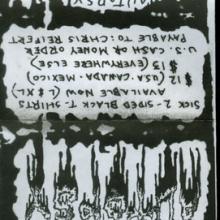 SICK 2-SIDED BLACK T-SHIRTS
AVAILABLE NOW (L & XL)
$12 (USA·CANADA·MEXICO)
$15 (EVERYWHERE ELSE)
U.S. CASH OR MONEY ORDER
PAYABLE TO: CHRIS REIFERT